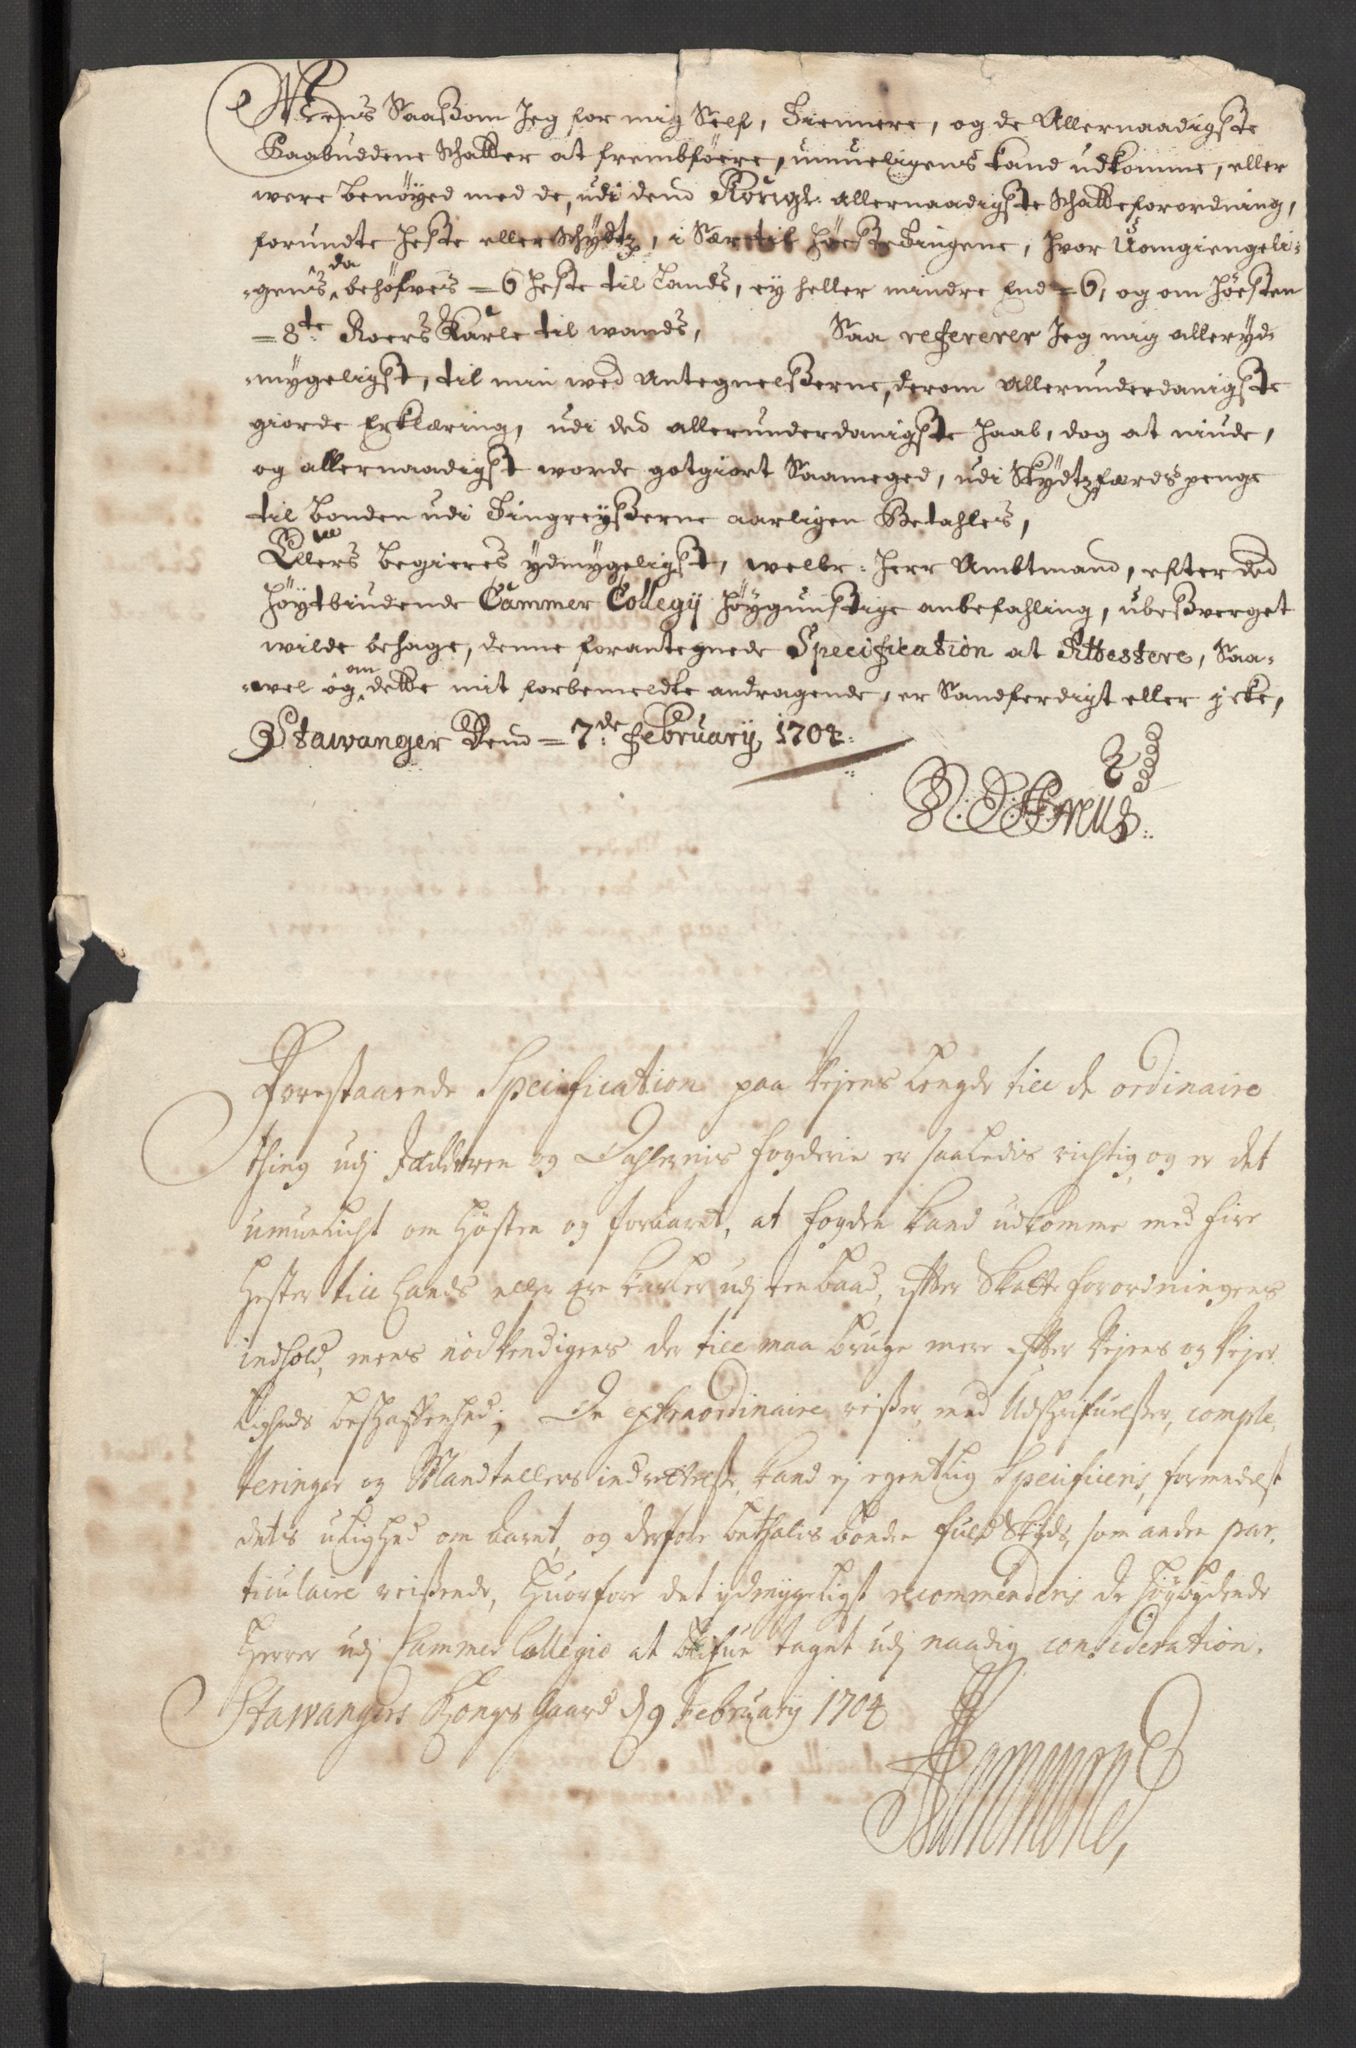 Mens Saasom Jeg for mig Self, Tiennere, og de Allernaadigste
Paabuddene Schatter at frembföere, umueligens kand udkomme, eller
were benöyed med de, udi dend Kongl: allernaadigste Schatteforordning,
forundte heste eller Schydtz, i Sær til höesteTingene, hvor Uomgiengeli-
-gens da behöfves = 6 heste til Lands, ey heller mindre End = 6, og om höesten
= 8te Roers Karle til wands, Saa refererer Jeg mig allerÿd-
-mygeligst, til min wed Antegnelsserne, derom Allerunderdanigste
giorde Erklæring, udi ded allerunderdanigste haab, dog at niude,
og allernaadigst worde gotgiort Saameged, udi Skÿdtzfærds penge
til bonden udi Tingreÿsserne aarligen Betahles,
Ellers begieres ydmygeligst, welbr: Herr Ambtmand, efter ded
höÿtbiudende Cammer Collegij höÿgunstige anbefahling, ubesverget
wilde behage, denne forantegnede Specification at Attestere, Saa-
-wel og an dette mit forbemeldte andragende, er Sandferdigt eller icke,
Stawanger Dend = 7de February 1704.
Forestaaende Specification paa Vejens Lengde till de ordinaire
thing udj Jædderen og Dahlernis fogderie er saaledis richtig, og er det
umueligt om Hösten og foraaret, at fogden kand udkomme med fire
Hester till Lands eller fire karler udj een baad, efter Skatte forordningens
indhold, mens nödvendigens der till maa bruge mere efter Vejens og Vejer
ligheds beschaffenhed; De extraordinaire reisser, med Udschrifuelsser, comple-
teringer og Mandtallers indrettelse, kand ej egentlig Specificeris, formedelst
dets ulighed om aaret, og derfore bethalis bonden fuld Skyds, som andre par-
ticulaire reisende, Huorfore det ydmygeligst recommenderis de höybydende
Herrer udj Cammer Collegio at blifue taget udj naadig consideration.
Stawangers Kongs gaard d 9 February 1704